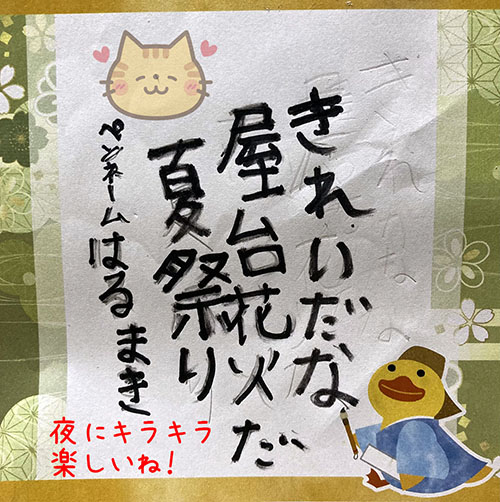 きれいだな
屋台花火だ
夏祭り
ペンネームはるまき
夜にキラキラ
楽しいね!